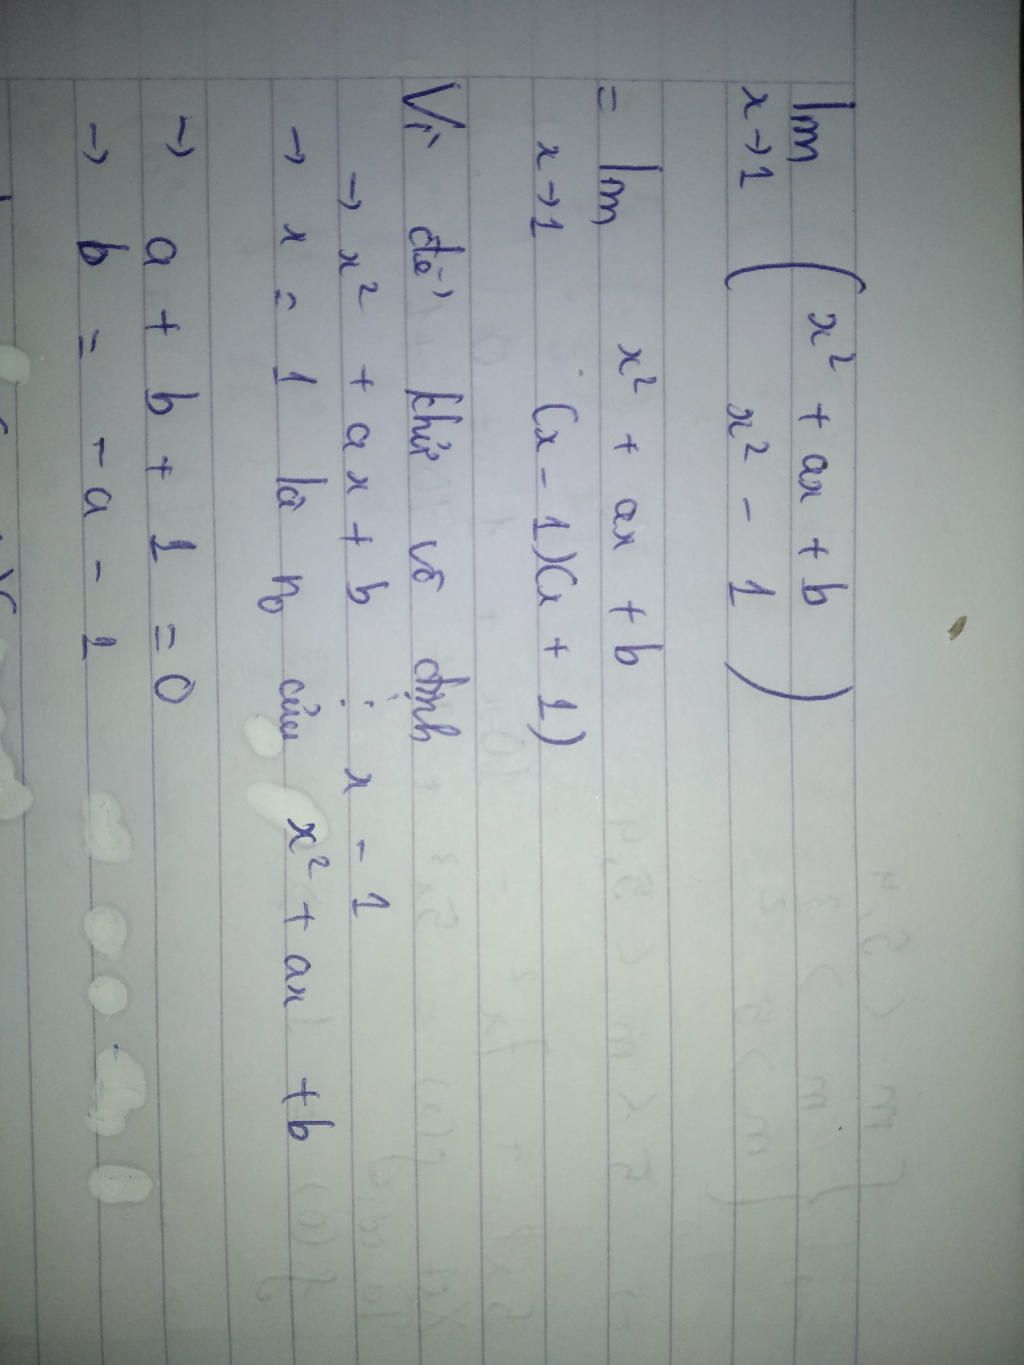 lim ( x² + ax + b
x→1 x² - 1 )
= lim x² + ax + b
x→1 (x - 1)(x + 1)
Vì để khử vô định
→ x² + ax + b ⋮ x - 1
→ x = 1 là n₀ của x² + ax + b
→ a + b + 1 = 0
→ b = -a - 1